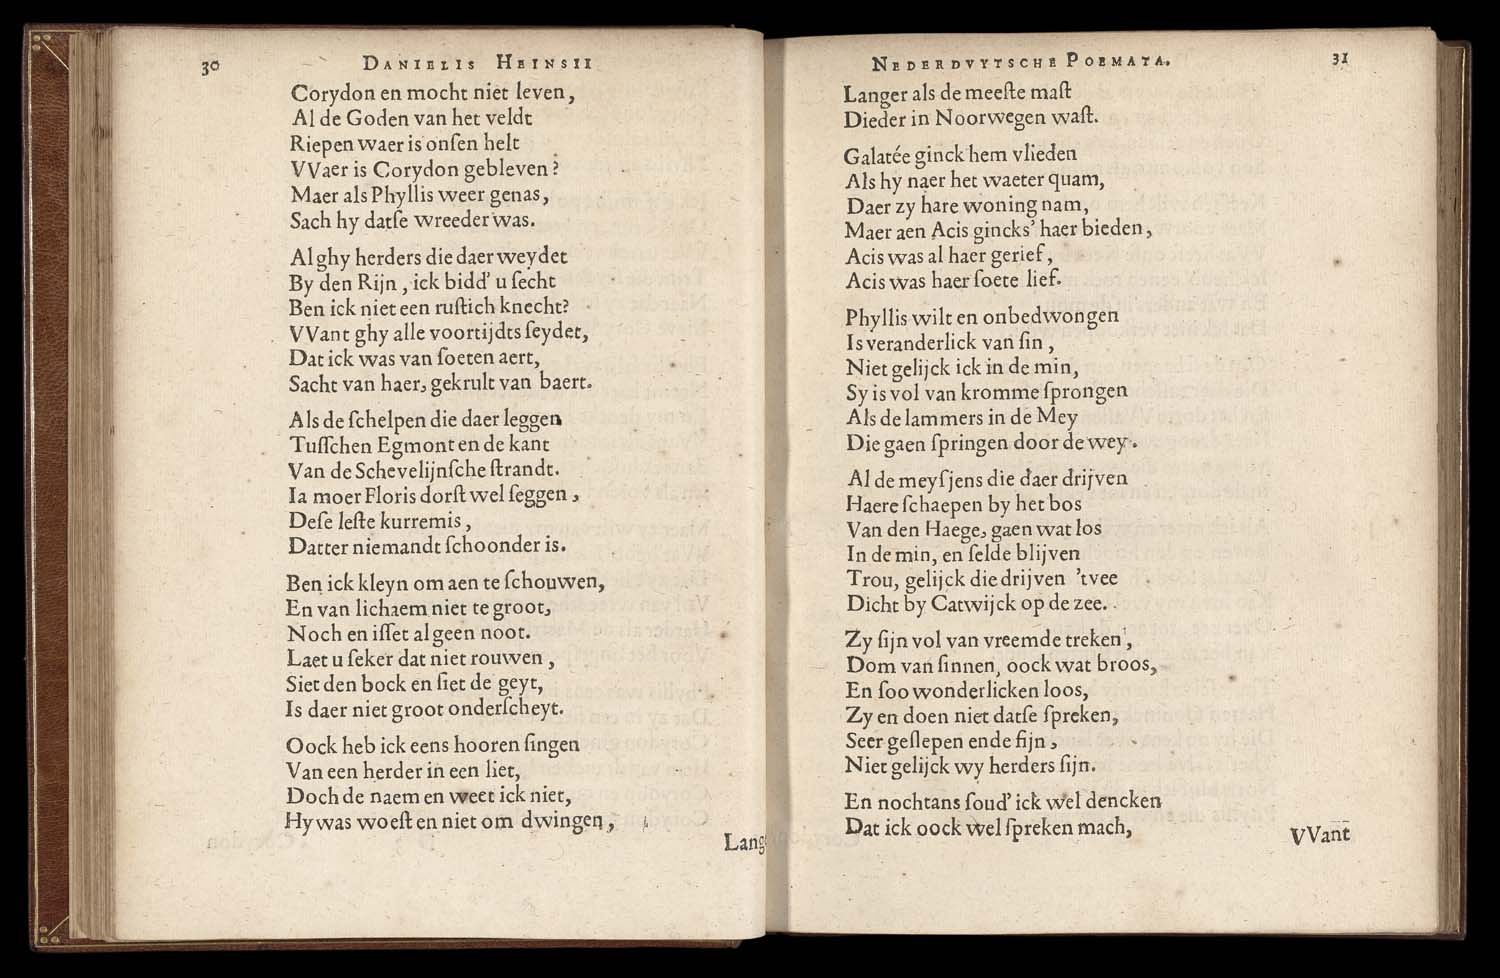 30 DANIELIS HEINSII
Corydon en mocht niet leven,
Al de Goden van het veldt
Riepen waer is onſen helt
VVaer is Corydon gebleven?
Maer als Phyllis weer genas,
Sach hy datſe wreeder was.
Al ghy herders die daer weydet
By den Rijn, ick bidd' u ſecht
Ben ick niet een ruſtich knecht?
VVant ghy alle voortijdts ſeydet,
Dat ick was van ſoeten aert,
Sacht van haer, gekrult van baert.
Als de ſchelpen die daer leggen
Tuſſchen Egmont en de kant
Van de Schevelijnſche ſtrandt.
Ia moer Floris dorſt wel ſeggen,
Deſe leſte kurremis,
Datter niemandt ſchoonder is.
Ben ick kleyn om aen te ſchouwen,
En van lichaem niet te groot,
Noch en iſſet al geen noot.
Laet u ſeker dat niet rouwen,
Siet den bock en ſiet de geyt,
Is daer niet groot onderſcheyt.
Oock heb ick eens hooren ſingen
Van een herder in een liet,
Doch de naem en weet ick niet,
Hy was woeſt en niet om dwingen,
Lang
NEDERDVYTSCHE POEMATA. 31
Langer als de meeſte maſt
Dieder in Noorwegen waſt.
Galatée ginck hem vlieden
Als hy naer het waeter quam,
Daer zy hare woning nam,
Maer aen Acis gincks' haer bieden,
Acis was al haer gerief,
Acis was haer ſoete lief.
Phyllis wilt en onbedwongen
Is veranderlick van ſin,
Niet gelijck ick in de min,
Sy is vol van kromme ſprongen
Als de lammers in de Mey
Die gaen ſpringen door de wey.
Al de meyſjens die daer drijven
Haere ſchaepen by het bos
Van den Haege, gaen wat los
In de min, en ſelde blijven
Trou, gelijck die drijven 'tvee
Dicht by Catwijck op de zee.
Zy ſijn vol van vreemde treken,
Dom van ſinnen, oock wat broos,
En ſoo wonderlicken loos,
Zy en doen niet datſe ſpreken,
Seer geſlepen ende fijn,
Niet gelijck wy herders ſijn.
En nochtans ſoud' ick wel dencken
Dat ick oock wel ſpreken mach,
VVant